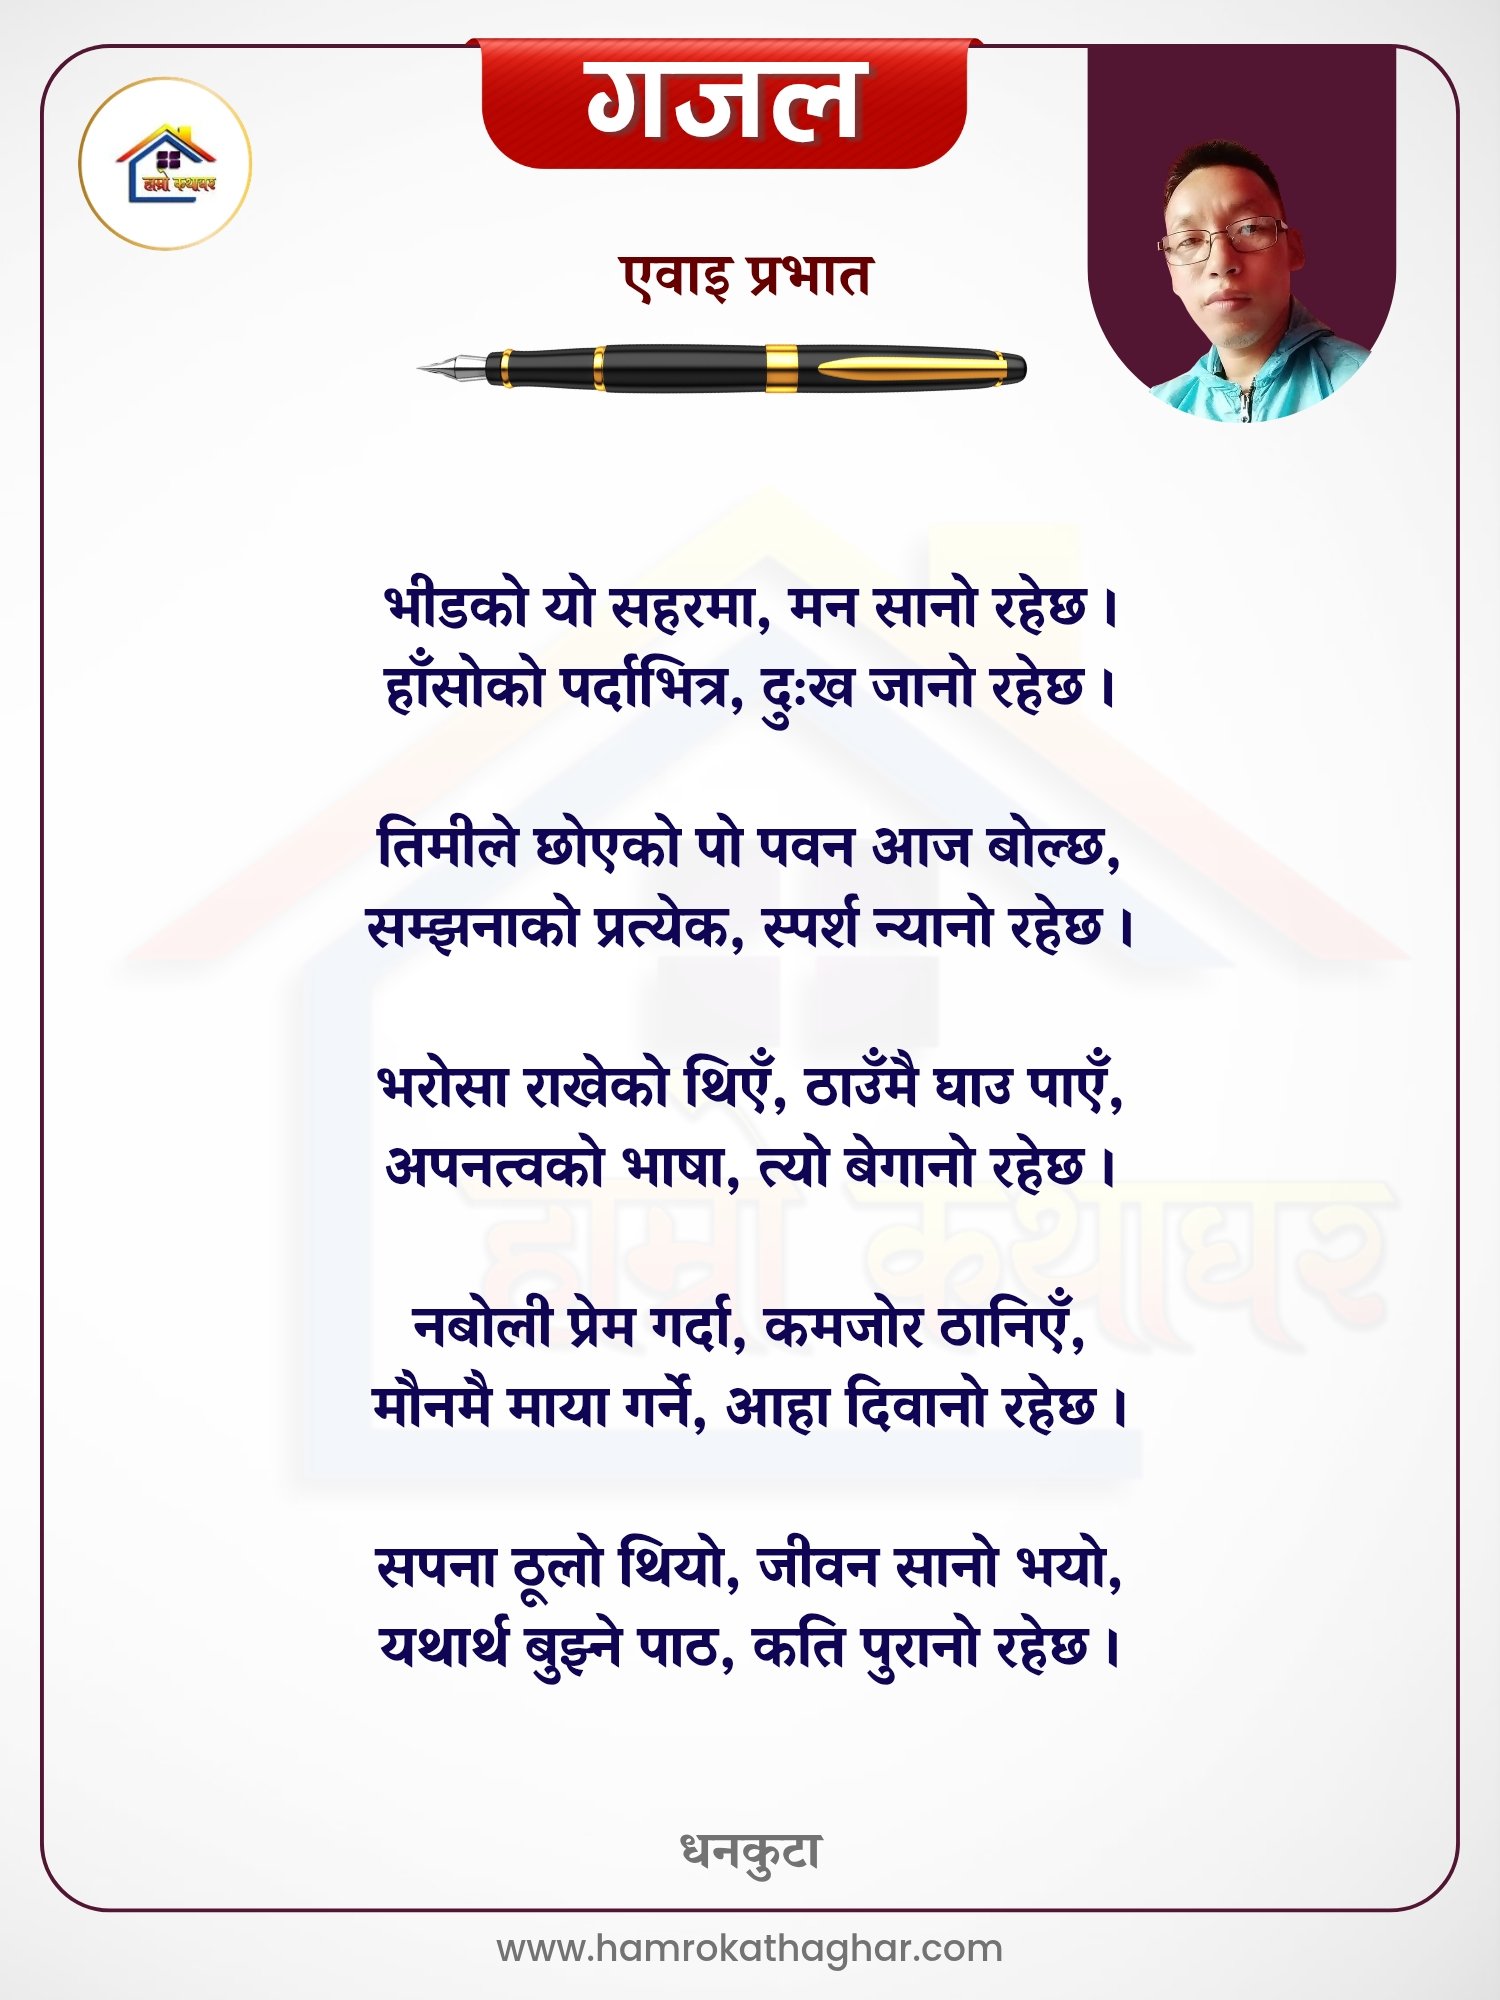 गजल
हाम्रो कथाघर
एवाइ प्रभात
भीडको यो सहरमा, मन सानो रहेछ।
हाँसोको पर्दाभित्र, दुःख जानो रहेछ।
तिमीले छोएको पो पवन आज बोल्छ,
सम्झनाको प्रत्येक, स्पर्श न्यानो रहेछ।
भरोसा राखेको थिएँ, ठाउँमै घाउ पाएँ,
अपनत्वको भाषा, त्यो बेगानो रहेछ।
हाम्रो कथाघर
नबोली प्रेम गर्दा, कमजोर ठानिएँ,
मौनमै माया गर्ने, आहा दिवानो रहेछ।
सपना ठूलो थियो, जीवन सानो भयो,
यथार्थ बुझ्ने पाठ, कति पुरानो रहेछ।
धनकुटा
www.hamrokathaghar.com